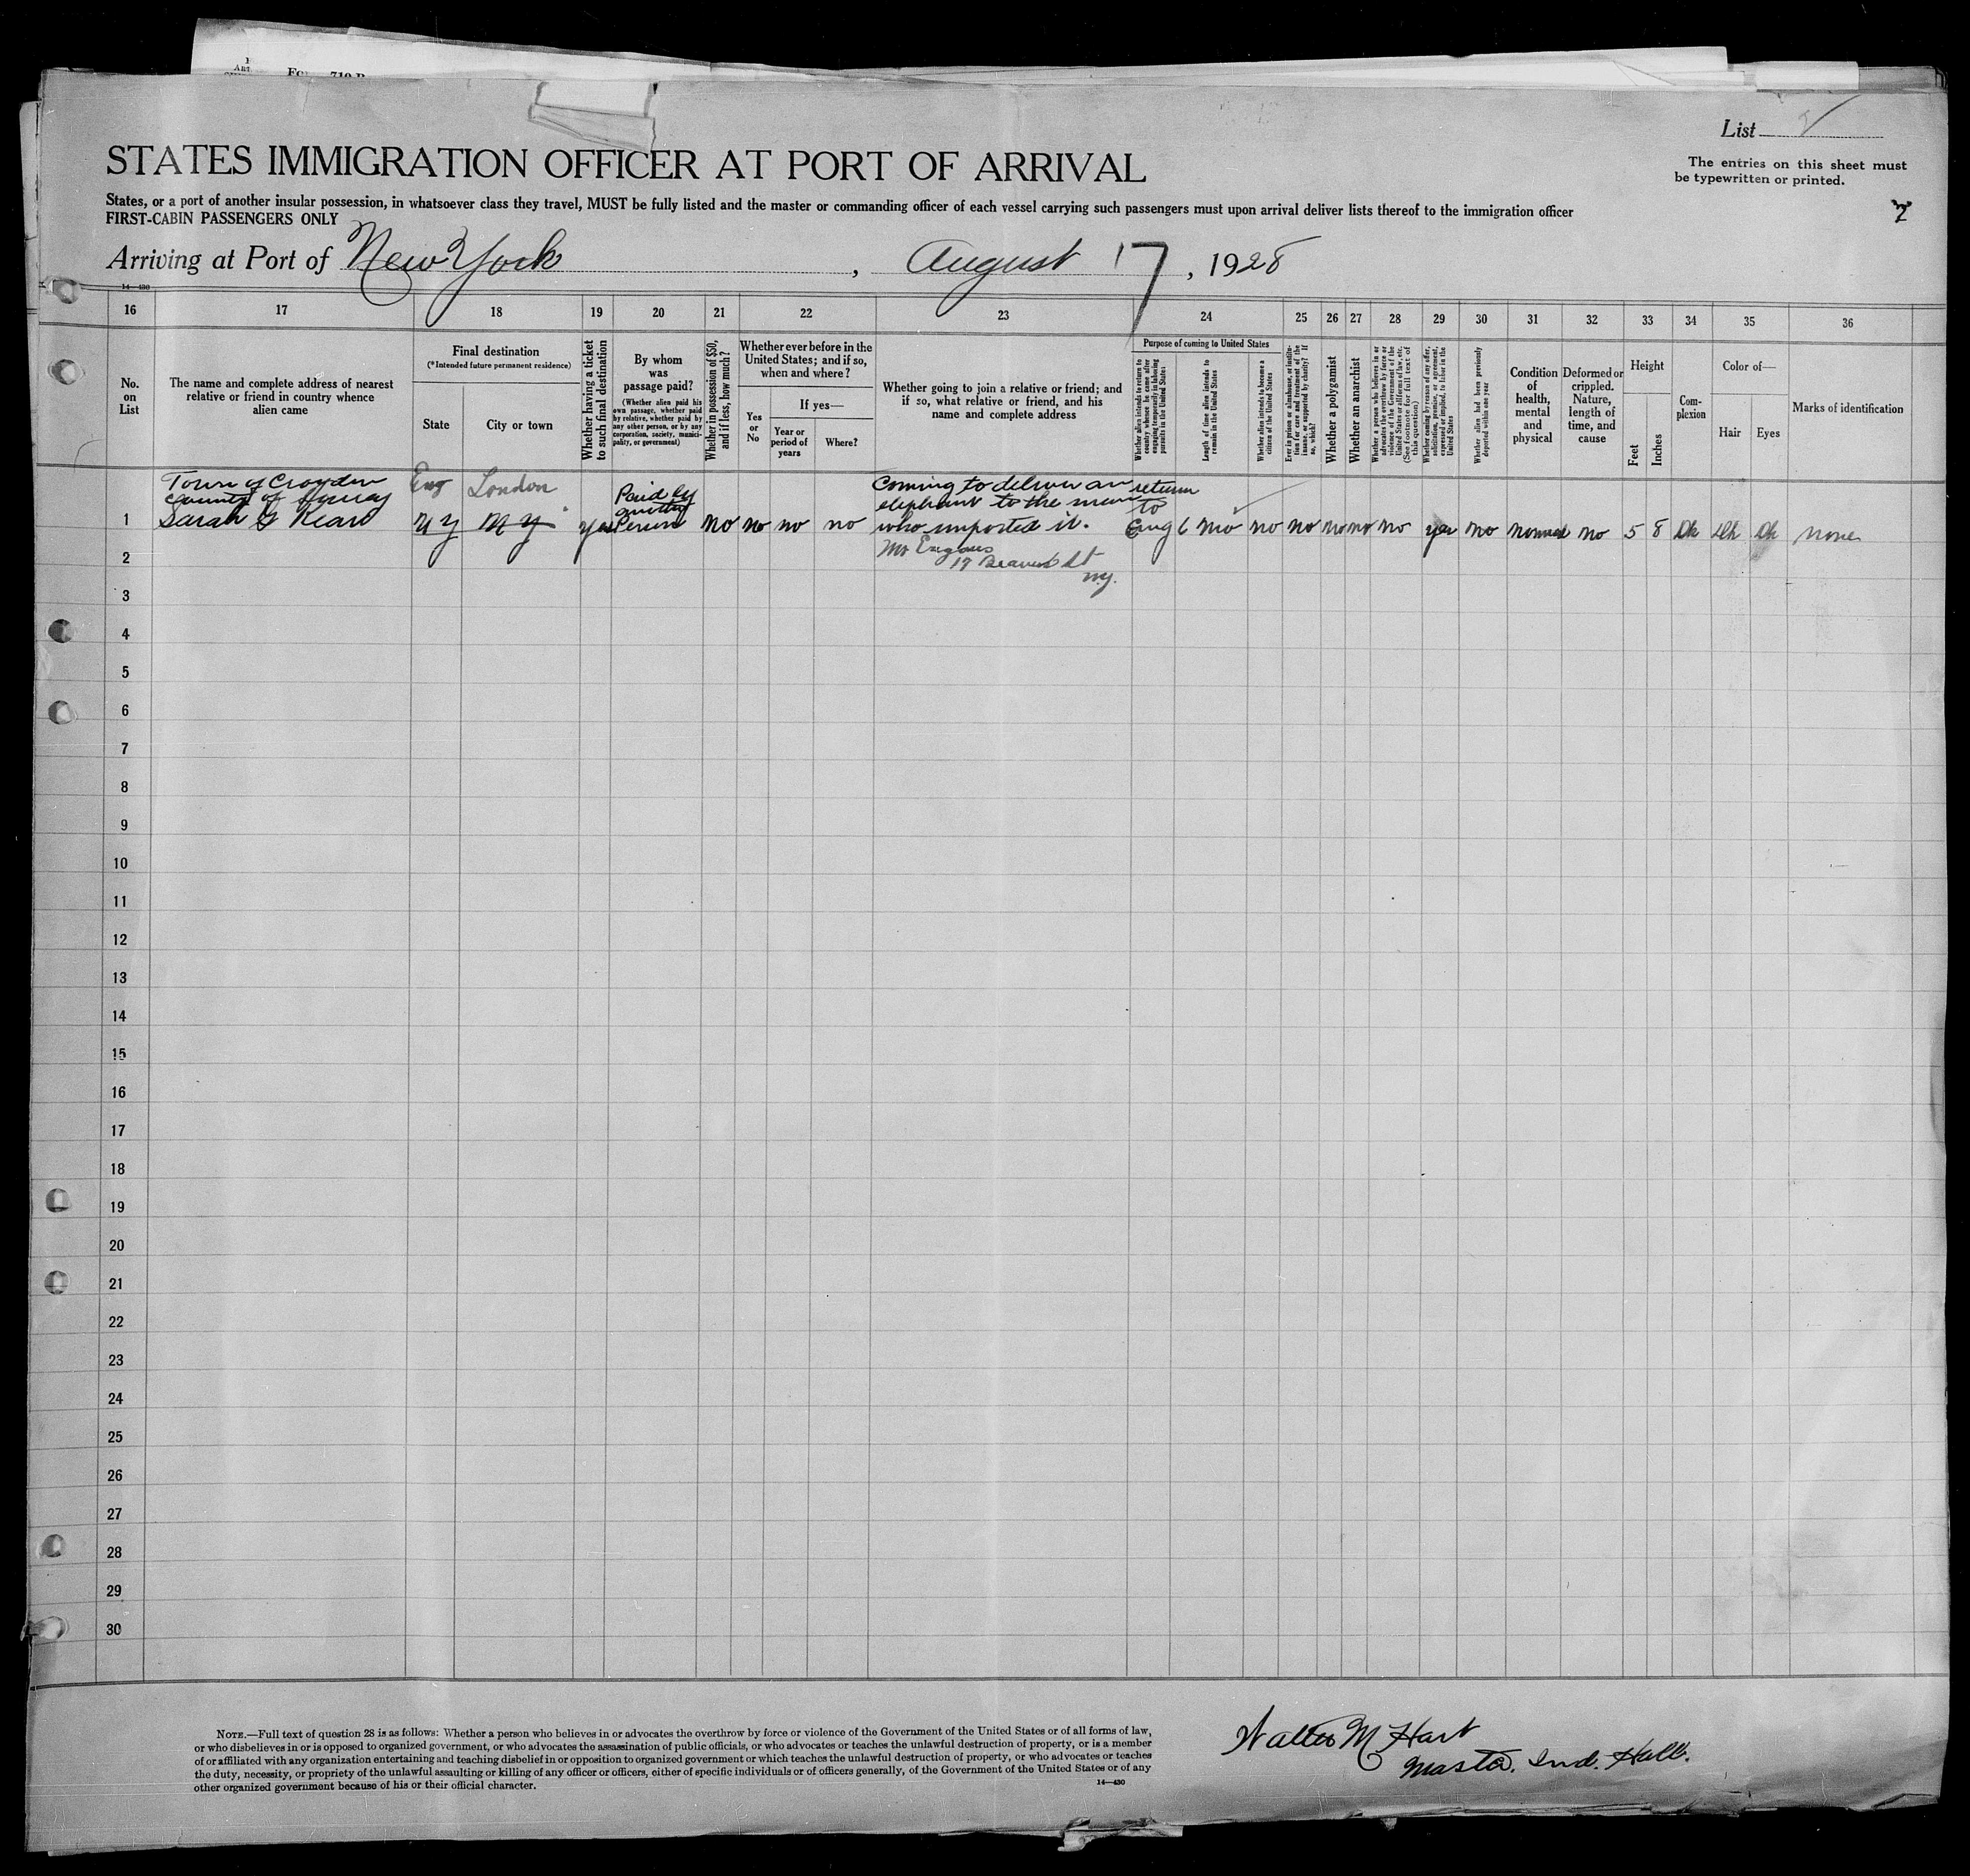 List
STATES IMMIGRATION OFFICER AT PORT OF ARRIVAL
The entries on this sheet must
be typewritten or printed.
States, or a port of another insular possession, in whatsoever class they travel, MUST be fully listed and the master or commanding officer of each vessel carrying such passengers must upon arrival deliver lists thereof to the immigration officer
FIRST-CABIN PASSENGERS ONLY
Arriving at Port of New York, August 17, 1928
14—430
16 17 18 19 20 21 22 23 24 25 26 27 28 29 30 31 32 33 34 35 36
No. on List
The name and complete address of nearest
relative or friend in country whence
alien came
Final destination
(*Intended future permanent residence)
State
City or town
Whether having a ticket
to such final destination
By whom
was
passage paid?
(Whether alien paid his
own passage, whether paid
by relative, whether paid by
any other person, or by any
corporation, society, munici-
pality, or government)
Whether in possession of $50,
and if less, how much?
Whether ever before in the
United States; and if so,
when and where?
Yes
or
No
If yes—
Year or
period of
years
Where?
Whether going to join a relative or friend; and
if so, what relative or friend, and his
name and complete address
Purpose of coming to United States
Whether alien intends to return to
country whence he came after
engaging temporarily in laboring
pursuits in the United States
Length of time alien intends to
remain in the United States
Whether alien intends to become a
citizen of the United States
Ever in prison or almshouse, or institu-
tion for care and treatment of the
insane, or supported by charity? If
so, which?
Whether a polygamist
Whether an anarchist
Whether a person who believes in or
advocates the overthrow by force or
violence of the Government of the
United States or all forms of law, etc.
(See footnote for full text of
this question)
Whether coming by reason of any offer,
solicitation, promise, or agreement,
expressed or implied, to labor in the
United States
Whether alien had been previously
deported within one year
Condition
of
health,
mental
and
physical
Deformed or
crippled.
Nature,
length of
time, and
cause
Height
Feet
Inches
Com-
plexion
Color of—
Hair
Eyes
Marks of identification
Town of Croydon
County of Surrey
1 Sarah G
Eng London
N Y N Y
yes
Paid by
another
Person
no no no no
Coming to deliver an
elephant to the man
who imported it.
Mr
19 Beaver St
N.y.
return
to
Eng 6 mo no no no no no yes no normal no 5 8 Dk Dk Dk none
2
3
4
5
6
7
8
9
10
11
12
13
14
15
16
17
18
19
20
21
22
23
24
25
26
27
28
29
30
NOTE.—Full text of question 28 is as follows: Whether a person who believes in or advocates the overthrow by force or violence of the Government of the United States or of all forms of law,
or who disbelieves in or is opposed to organized government, or who advocates the assassination of public officials, or who advocates or teaches the unlawful destruction of property, or is a member
of or affiliated with any organization entertaining and teaching disbelief in or opposition to organized government or which teaches the unlawful destruction of property, or who advocates or teaches
the duty, necessity, or propriety of the unlawful assaulting or killing of any officer or officers, either of specific individuals or of officers generally, of the Government of the United States or of any
other organized government because of his or their official character.
14—430
Walter M Hart
Master. Ind. Hall.